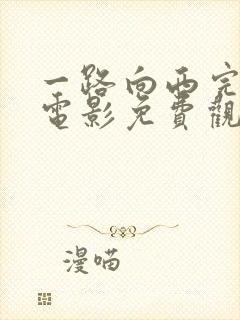 一路向西完
電影免費觀
漫喵